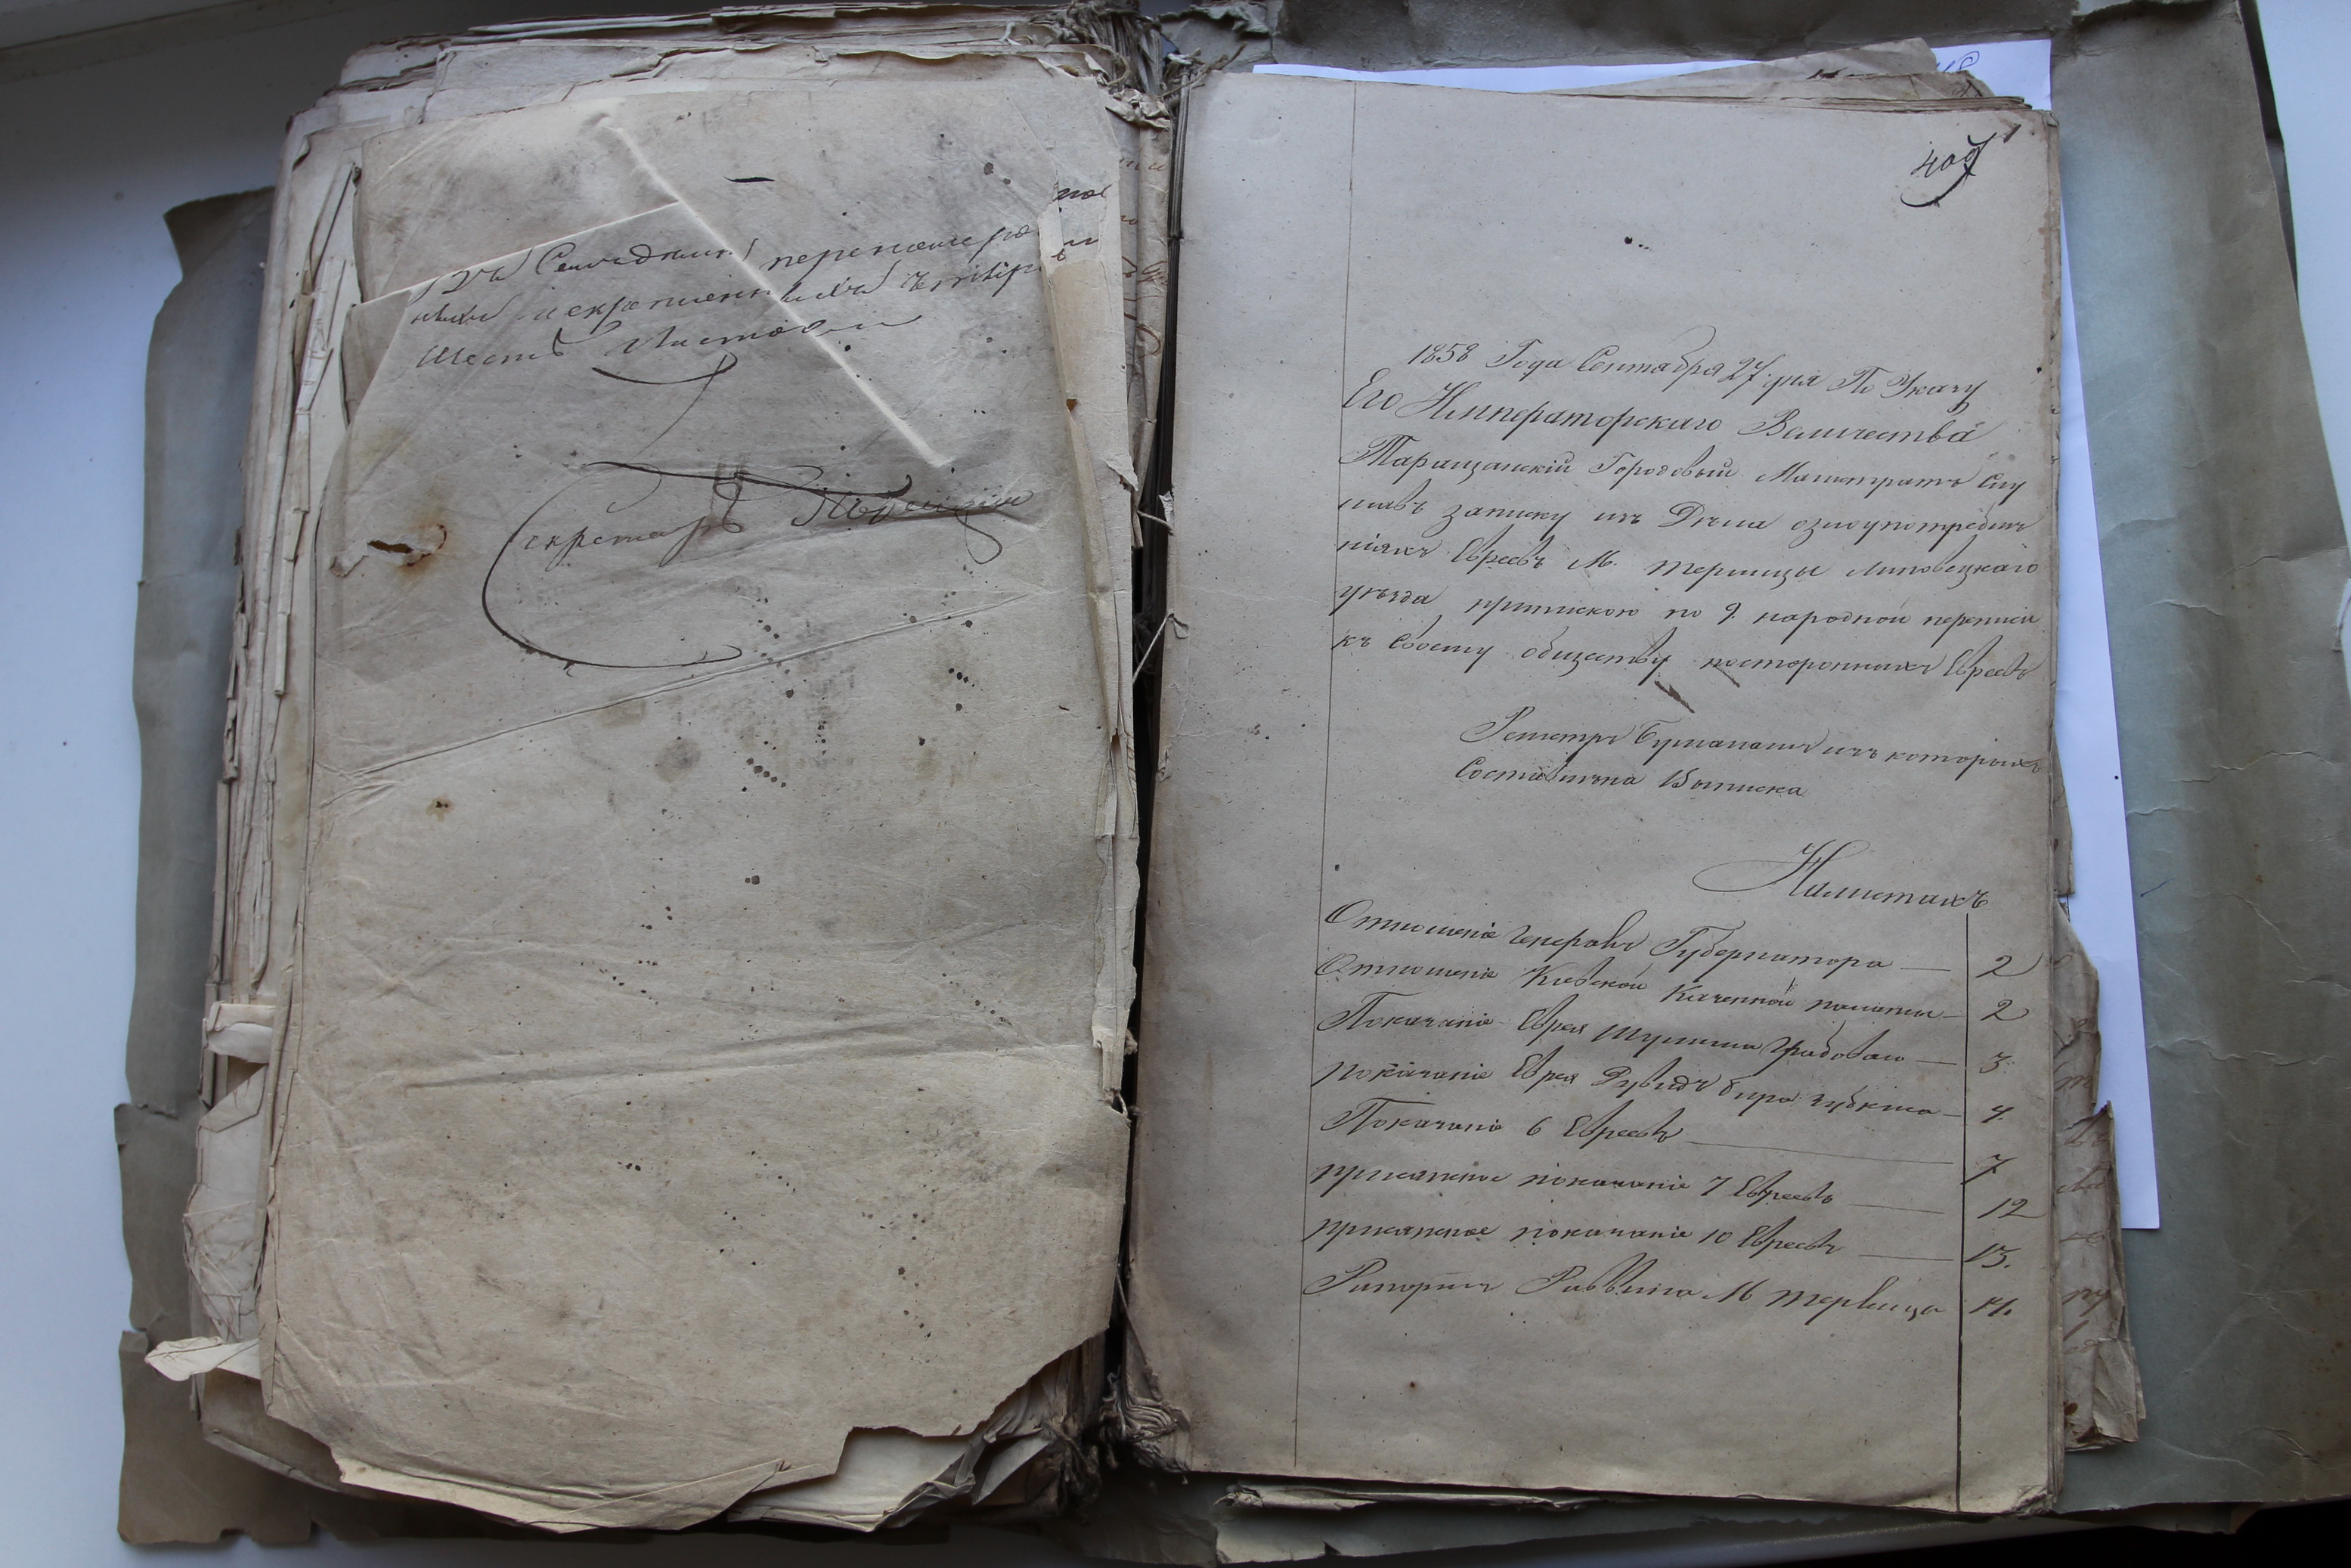 нихъ и скрепленныхъ четыр
Шесть Листовъ
Секретарь
407
1858 Года Сентября 27 дня По Указу
Его Императорскаго Величества
Таращанскій Городовый Магистратъ Слу
шавъ записку изъ Дѣла о злоупотребле
ніяхъ Евреевъ М. Терлицы Липовецкаго
уѣзда припискою по 9. народной переписи
къ своему обществу постороннихъ Евреевъ
Реистръ Бумагамъ изъ которыхъ
Составлена Выписка
На листахъ
Отношеніе Генералъ Губернатора — 2
Отношеніе Кіевской Казенной палаты — 2
Показаніе Еврея Шулима Градоваго — 3
показаніе Еврея — 4.
Показаніе 6 Евреевъ — 7
присяжное показаніе 7 Евреевъ — 12
присяжное показаніе 10 Евреевъ — 13.
Рапортъ Раввина М Терлицы 14.